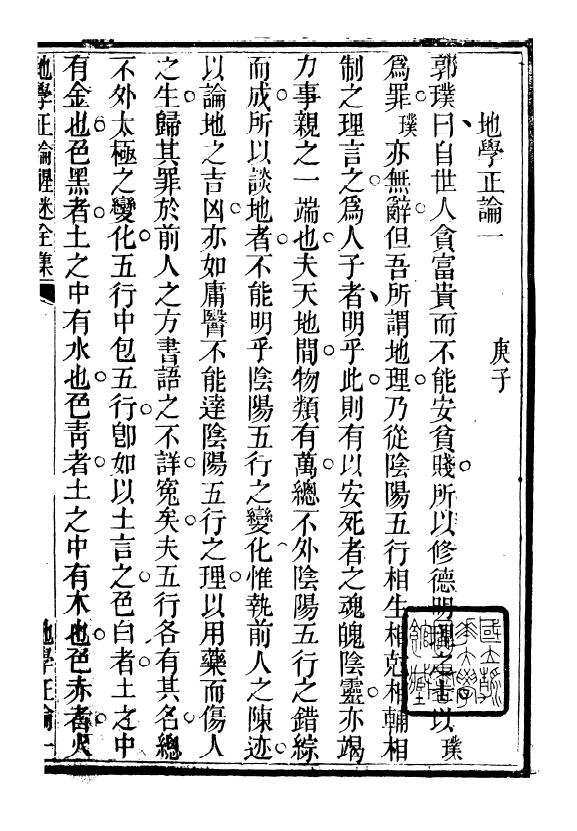 地學正論一
庚子
郭璞曰自世人貪富貴而不能安貧賤所以修德明之以璞
爲罪璞亦無辭但吾所謂地理乃從陰陽五行相生相尅相輔相
制之理言之爲人子者明乎此則有以安死者之魂魄陰靈亦竭
力事親之一端也夫天地間物類有萬總不外陰陽五行之錯綜
而成所以談地者不能明乎陰陽五行之變化惟執前人之陳迹
以論地之吉凶亦如庸醫不能達陰陽五行之理以用藥而傷人
之生歸其罪於前人之方書語之不詳寃矣夫五行各有其名總
不外太極之變化五行中包五行卽如以土言之色白者土之中
有金也色黑者土之中有水也色靑者土之中有木也色赤者火
地學正論醒迷全集
地學正論一